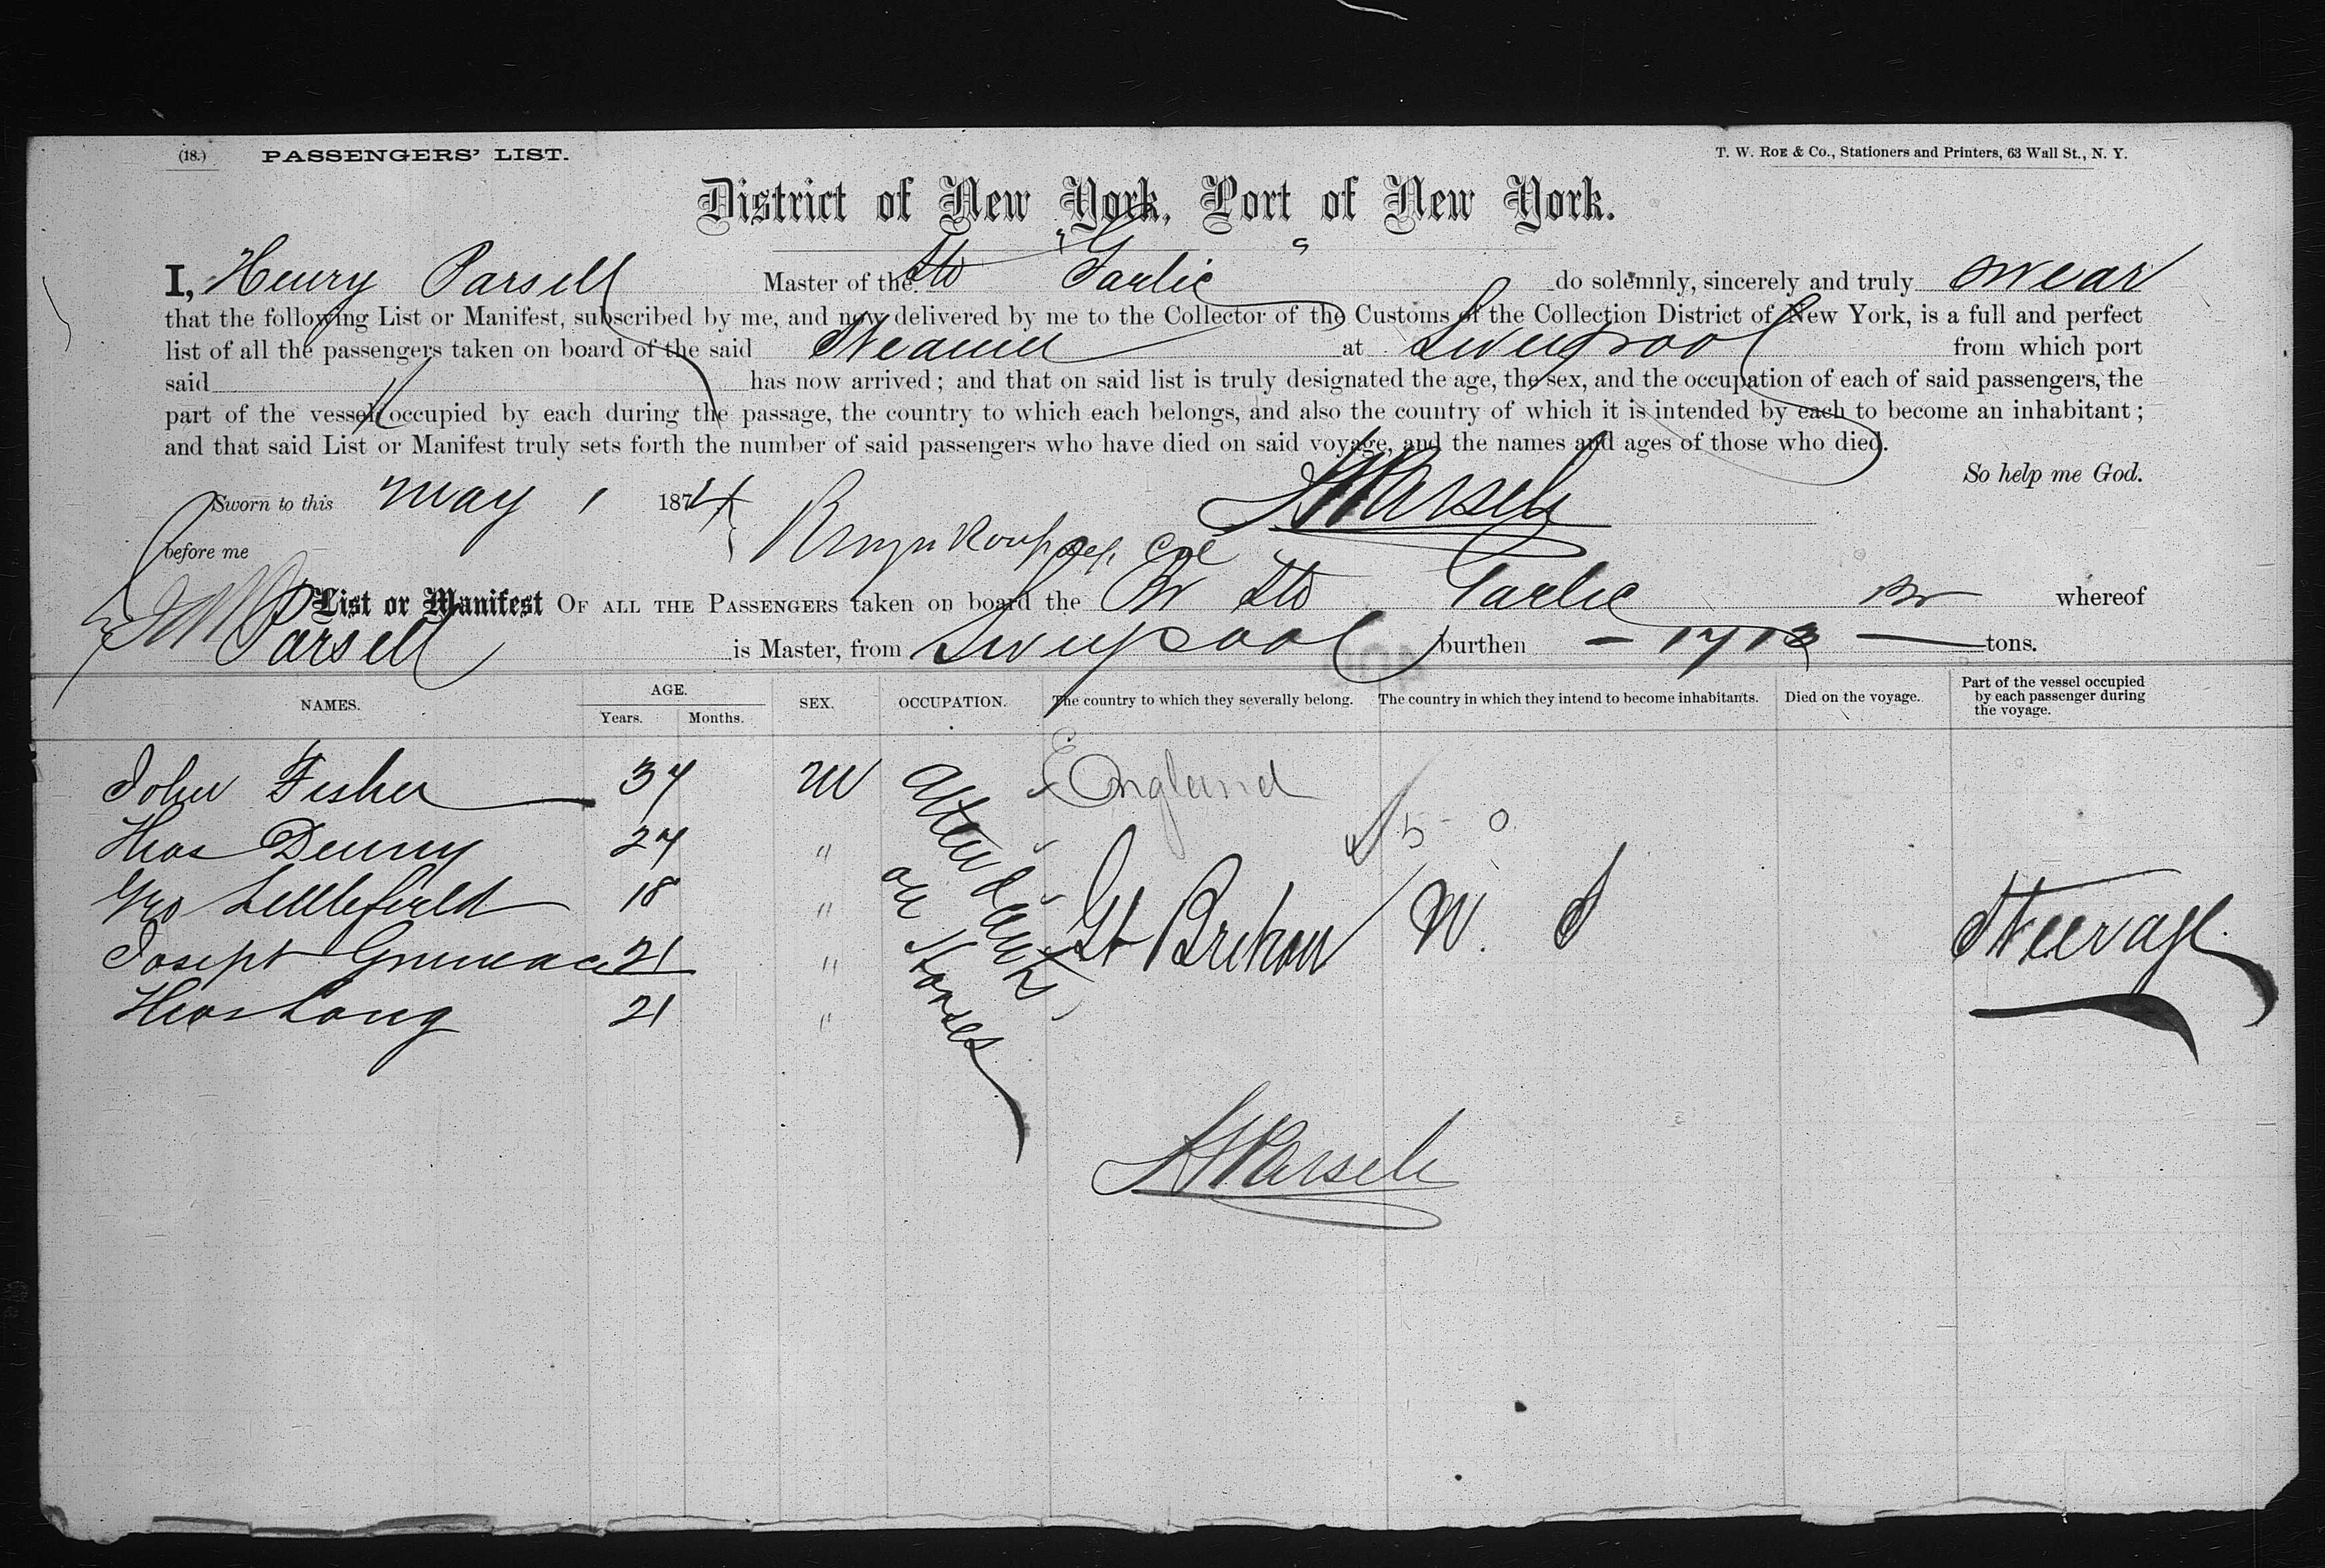 (18.) PASSENGERS' LIST. T. W. ROE & CO., Stationers and Printers, 63 Wall St., N. Y.
District of New York, Port of New York.
I, Henry Parsell Master of the Str "Garlic" do solemnly, sincerely and truly swear
that the following List or Manifest, subscribed by me, and now delivered by me to the Collector of the Customs of the Collection District of New York, is a full and perfect
list of all the passengers taken on board of the said Steamer at Liverpool from which port
said has now arrived; and that on said list is truly designated the age, the sex, and the occupation of each of said passengers, the
part of the vessel occupied by each during the passage, the country to which each belongs, and also the country of which it is intended by each to become an inhabitant;
and that said List or Manifest truly sets forth the number of said passengers who have died on said voyage, and the names and ages of those who died.
So help me God.
Sworn to this May 1 1874 HParsell
before me
List or Manifest OF ALL THE PASSENGERS taken on board the Br Str Garlic Br whereof
Parsell is Master, from Liverpool burthen - 1713 - tons.
NAMES. AGE. Years. Months. SEX. OCCUPATION. The country to which they severally belong. The country in which they intend to become inhabitants. Died on the voyage. Part of the vessel occupied by each passenger during the voyage.
John Fisher 37 M Attendants on Horses England
Thos Denny 27 " 5 - 0
Geo Littlefield 18 " Gt Britain U. S Steerage
Joseph 21 "
Thos Long 21 "
HParsell